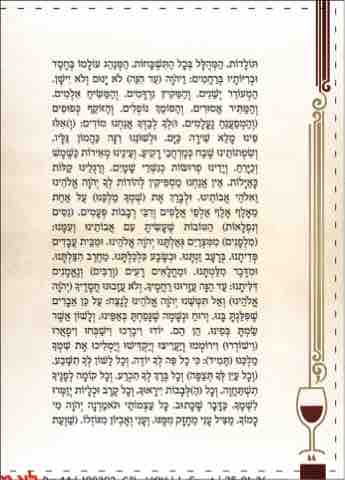 תּוֹלָדוֹת, הַמְהֻלָּל בְּכָל הַתִּשְׁבָּחוֹת, הַמְנַהֵג עוֹלָמוֹ בְּחֶסֶד
וּבְרִיּוֹתָיו בְּרַחֲמִים: וַיהוָה (עֵר הִנֵּה) לֹא יָנוּם וְלֹא יִישָׁן,
הַמְעוֹרֵר יְשֵׁנִים, וְהַמֵּקִיץ נִרְדָּמִים, וְהַמֵּשִׂיחַ אִלְּמִים,
וְהַמַּתִּיר אֲסוּרִים, וְהַסּוֹמֵךְ נוֹפְלִים, וְהַזּוֹקֵף כְּפוּפִים
(וְהַמְפַעֲנֵחַ נֶעֱלָמִים, וּלְךָ לְבַדְּךָ אֲנַחְנוּ מוֹדִים: (וְ)אִלּוּ
פִינוּ מָלֵא שִׁירָה כַּיָּם, וּלְשׁוֹנֵנוּ רִנָּה כַּהֲמוֹן גַּלָּיו,
וְשִׂפְתוֹתֵינוּ שֶׁבַח כְּמֶרְחֲבֵי רָקִיעַ, וְעֵינֵינוּ מְאִירוֹת כַּשֶּׁמֶשׁ
וְכַיָּרֵחַ, וְיָדֵינוּ פְרוּשׂוֹת כְּנִשְׁרֵי שָׁמָיִם, וְרַגְלֵינוּ קַלּוֹת
כָּאַיָּלוֹת, אֵין אֲנַחְנוּ מַסְפִּיקִין לְהוֹדוֹת לְךָ יְהוָה אֱלֹהֵינוּ
וֵאלֹהֵי אֲבוֹתֵינוּ, וּלְבָרֵךְ אֶת (שִׁמְךָ מַלְכֵּנוּ) עַל אַחַת
מֵאֶלֶף אַלְפֵי אֲלָפִים וְרִבֵּי רְבָבוֹת פְּעָמִים, (נִסִּים
וְנִפְלָאוֹת) הַטּוֹבוֹת שֶׁעָשִׂיתָ עִם אֲבוֹתֵינוּ וְעִמָּנוּ:
(מִלְּפָנִים) מִמִּצְרַיִם גְּאַלְתָּנוּ יְהוָה אֱלֹהֵינוּ, וּמִבֵּית עֲבָדִים
פְּדִיתָנוּ, בְּרָעָב זַנְתָּנוּ, וּבְשָׂבָע כִּלְכַּלְתָּנוּ, מֵחֶרֶב הִצַּלְתָּנוּ,
וּמִדֶּבֶר מִלַּטְתָּנוּ, וּמֵחֳלָאִים רָעִים (וְרַבִּים) וְנֶאֱמָנִים
דִּלִּיתָנוּ: עַד הֵנָּה עֲזָרוּנוּ רַחֲמֶיךָ, וְלֹא עֲזָבוּנוּ חֲסָדֶיךָ (יְהוָה
אֱלֹהֵינוּ) וְאַל תִּטְּשֵׁנוּ יְהוָה אֱלֹהֵינוּ לָנֶצַח: עַל כֵּן אֵבָרִים
שֶׁפִּלַּגְתָּ בָּנוּ, וְרוּחַ וּנְשָׁמָה שֶׁנָּפַחְתָּ בְּאַפֵּינוּ, וְלָשׁוֹן אֲשֶׁר
שַׂמְתָּ בְּפִינוּ, הֵן הֵם, יוֹדוּ וִיבָרְכוּ וִישַׁבְּחוּ וִיפָאֲרוּ
(וִישׁוֹרְרוּ) וִירוֹמְמוּ וְיַעֲרִיצוּ וְיַקְדִּישׁוּ וְיַמְלִיכוּ אֶת שִׁמְךָ
מַלְכֵּנוּ (תָּמִיד): כִּי כָל פֶּה לְךָ יוֹדֶה, וְכָל לָשׁוֹן לְךָ תִשָּׁבַע,
(וְכָל עַיִן לְךָ תְּצַפֶּה) וְכָל בֶּרֶךְ לְךָ תִכְרַע, וְכָל קוֹמָה לְפָנֶיךָ
תִשְׁתַּחֲוֶה, וְכָל (הַ)לְּבָבוֹת יִירָאוּךָ, וְכָל קֶרֶב וּכְלָיוֹת יְזַמְּרוּ
לִשְׁמֶךָ, כַּדָּבָר שֶׁכָּתוּב, כָּל עַצְמוֹתַי תֹּאמַרְנָה יְהוָה מִי
כָמוֹךָ, מַצִּיל עָנִי מֵחָזָק מִמֶּנּוּ, וְעָנִי וְאֶבְיוֹן מִגֹּזְלוֹ, (שַׁוְעַת